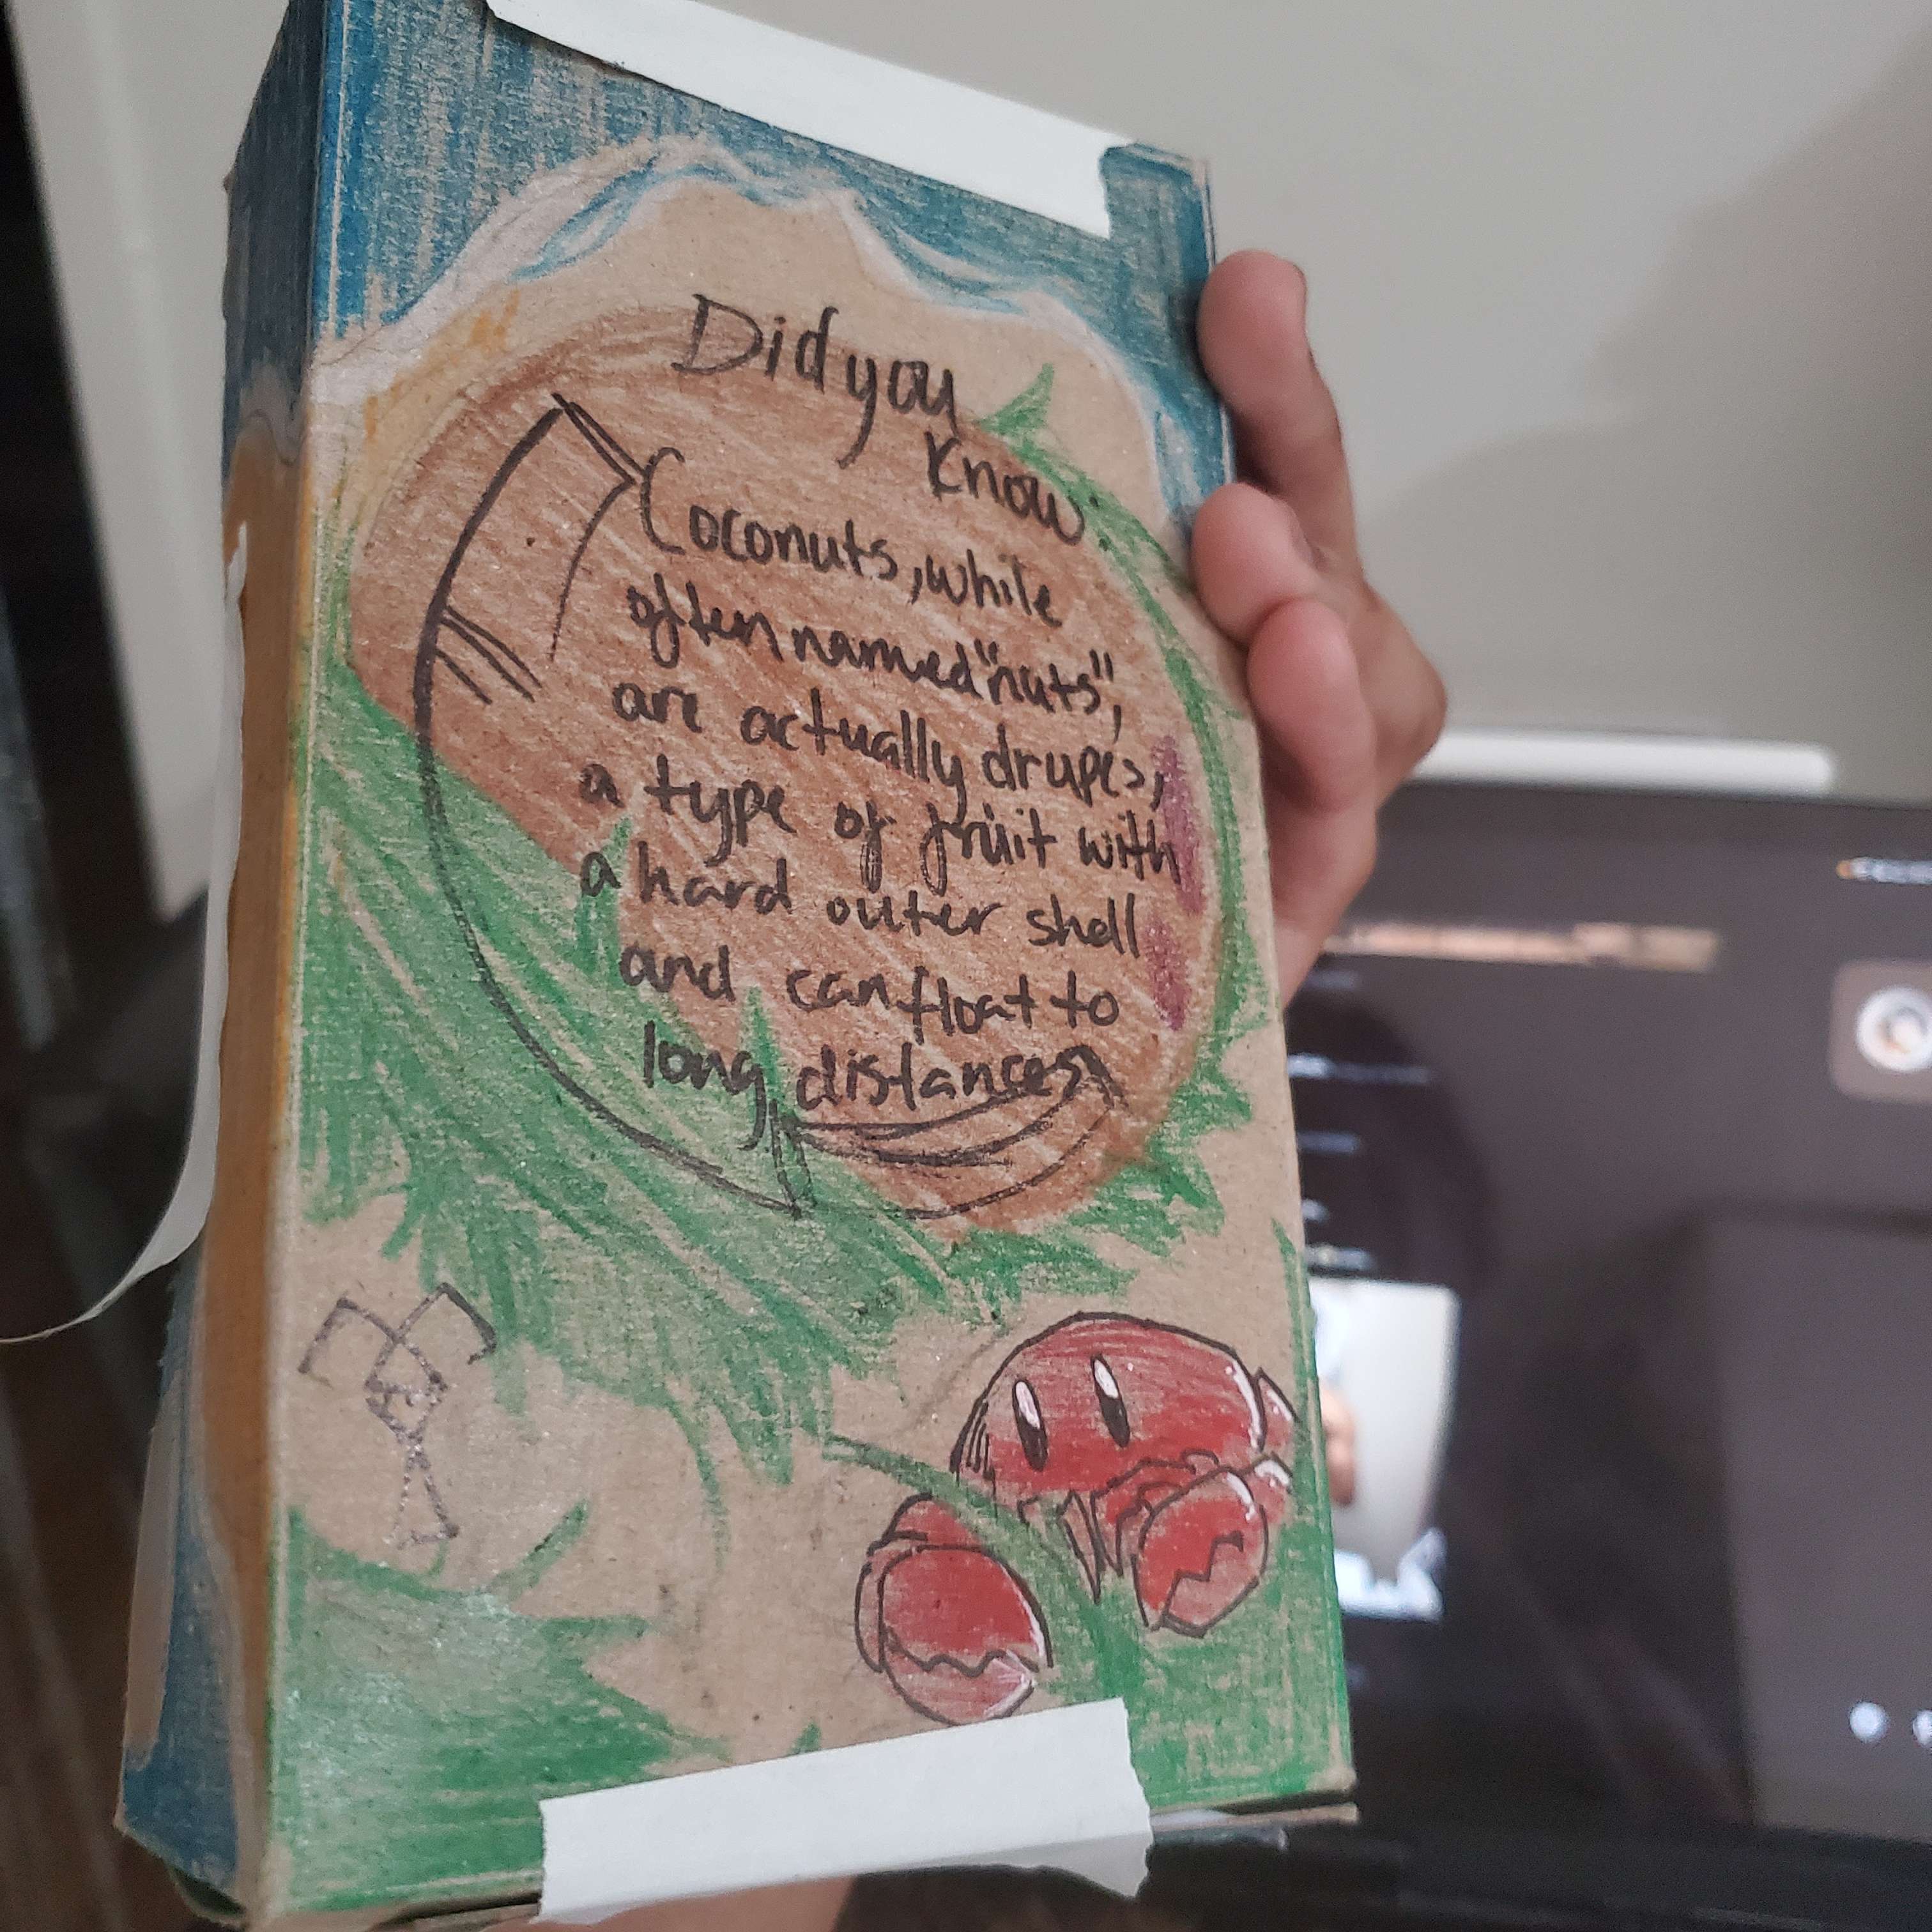 Did you
know:
Coconuts, while
often named "nuts",
are actually drupes,
a type of fruit with
a hard outer shell
and can float to
long distances